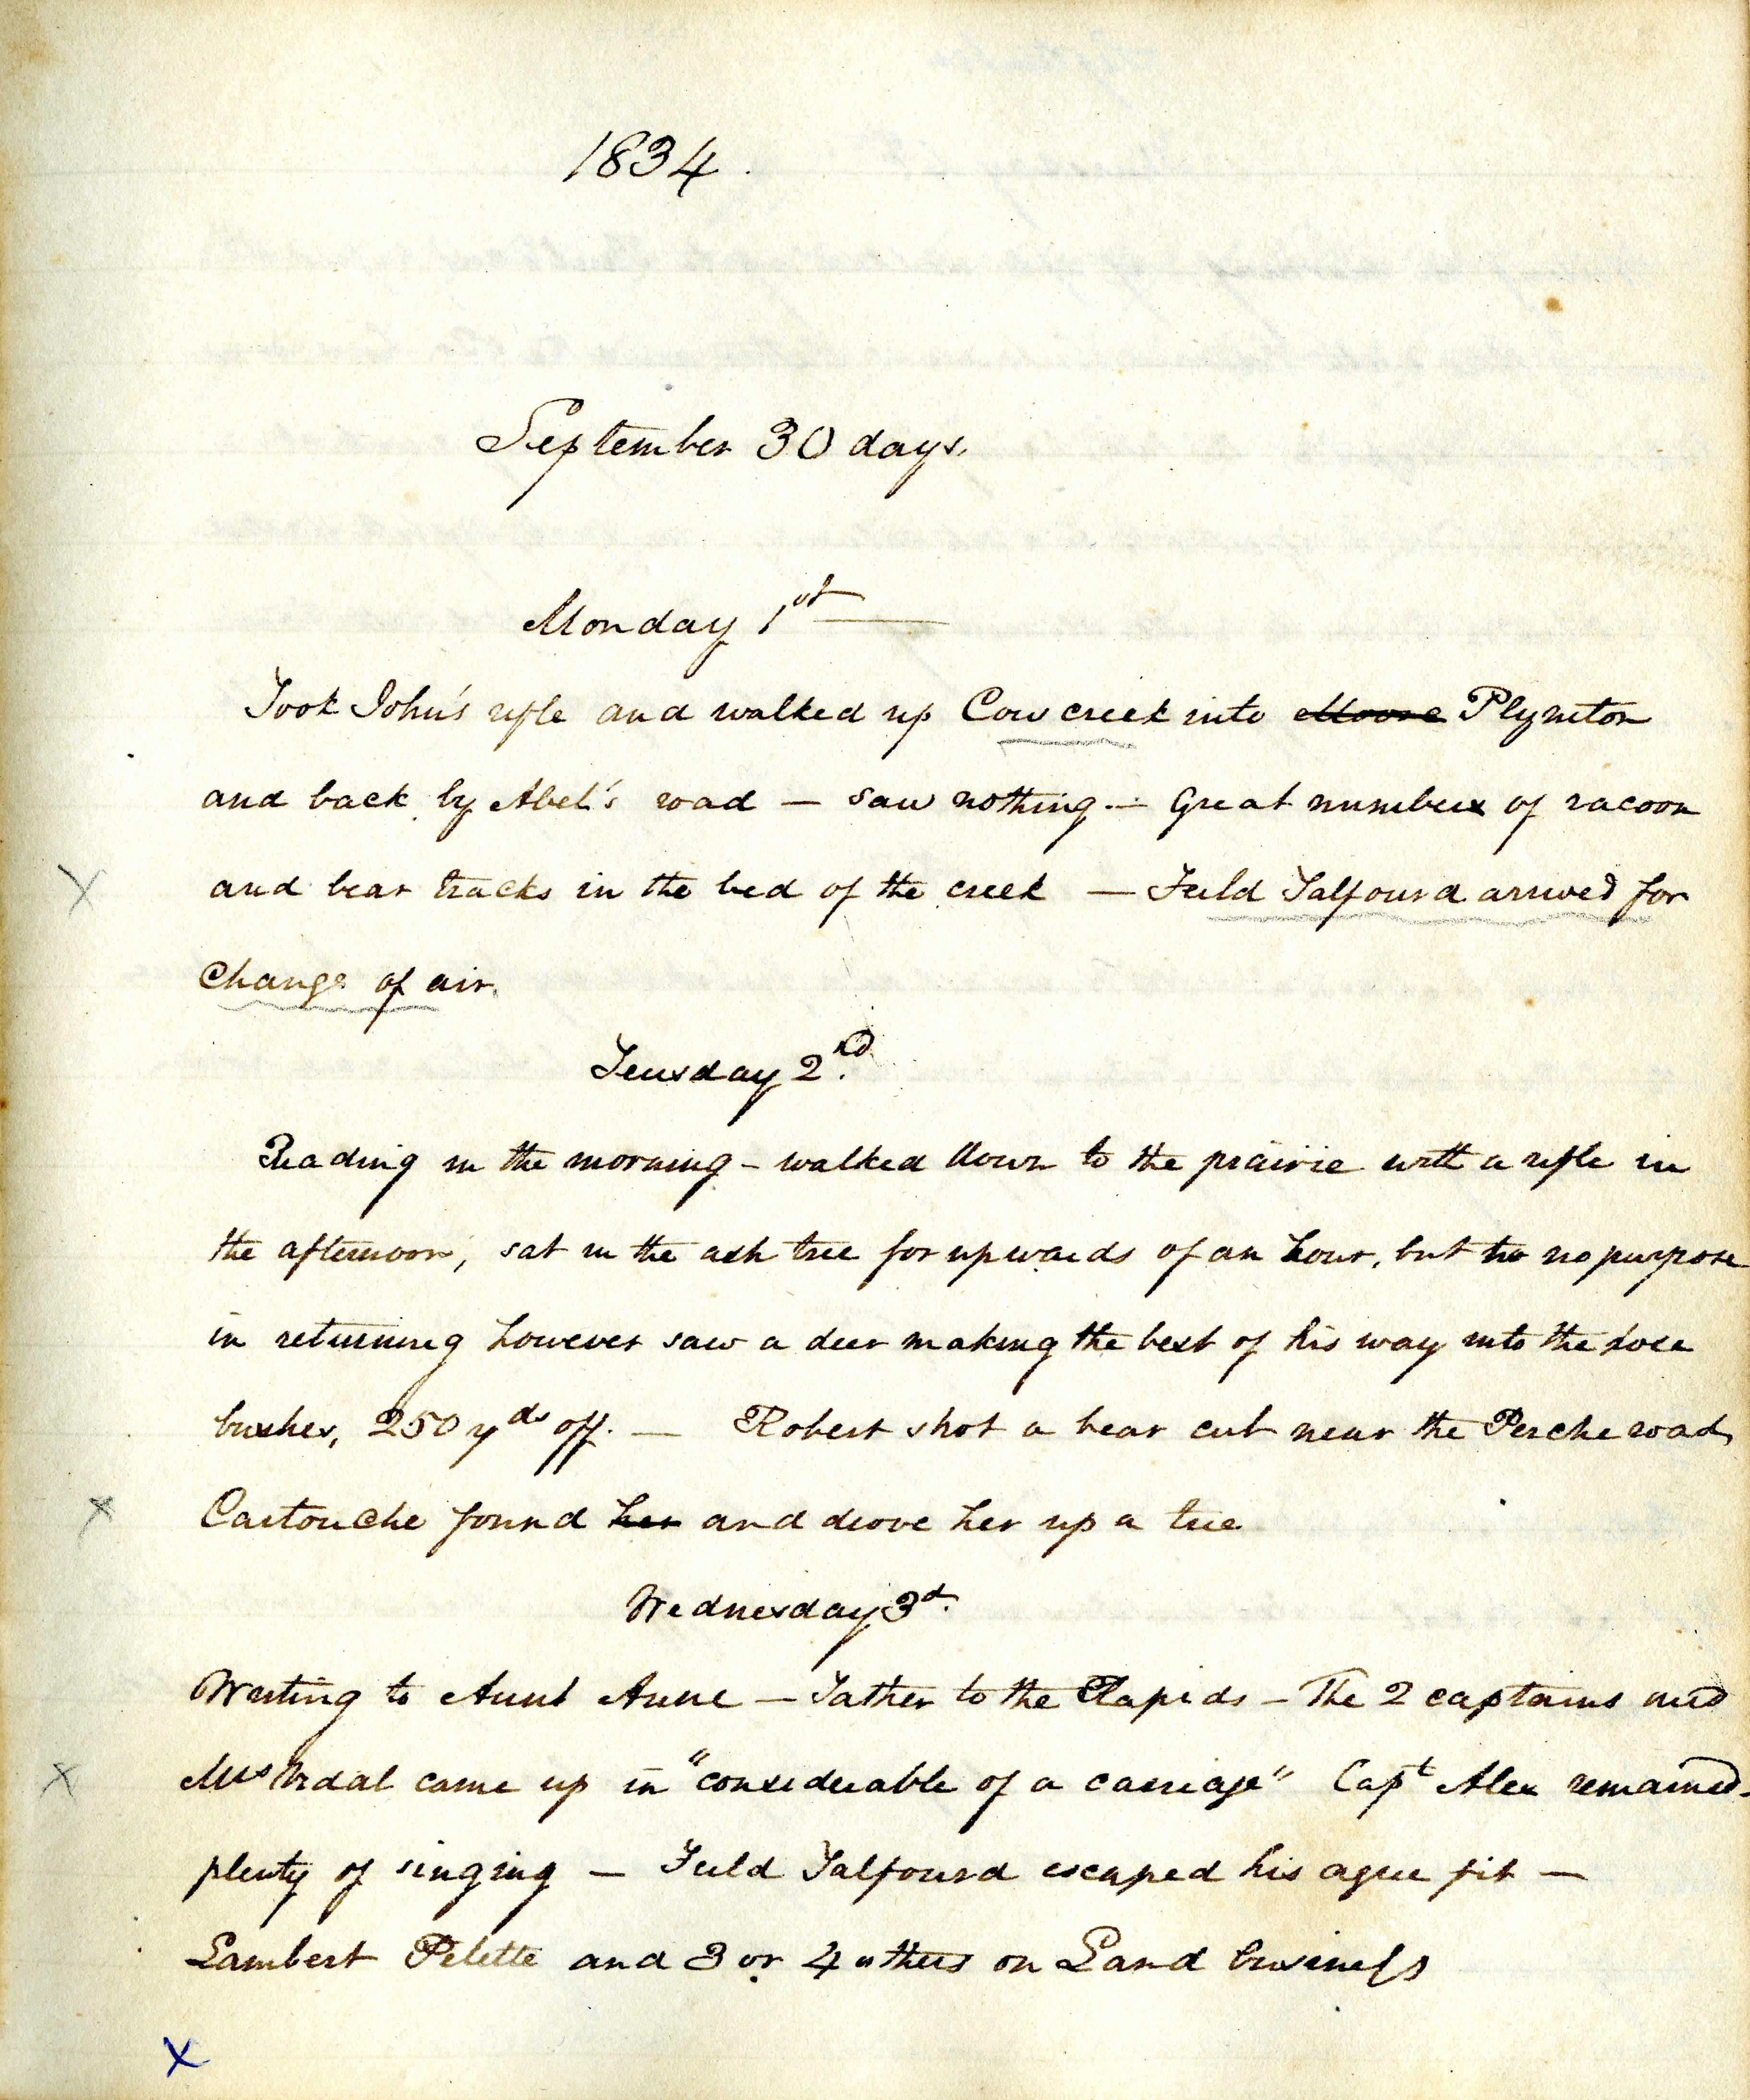 1834.
September 30 days.
Monday 1st
Took John's rifle and walked up Cow creek into Moore Plymton
and back by Abel's road — saw nothing. — Great numbers of racoon
and bear tracks in the bed of the creek — Feild Talfourd arrived for
Change of air.
Teusday 2nd.
Reading in the morning - walked down to the prairie with a rifle in
the afternoon, sat in the ash tree for upwards of an hour, but to no purpose
in returning however saw a deer making the best of his way into the
bushes, 250 yds off. — Robert shot a bear cub near the Perche road,
Cartouche found her and drove her up a tree
Wednesday 3d.
Writing to Aunt Anne — Father to the Rapids — The 2 captains and
Mrs Vidal came up in "considerable of a carriage" Capt Alex remained -
plenty of singing — Feild Talfourd escaped his ague fit —
Lambert Pelette and 3 or 4 others on Land business